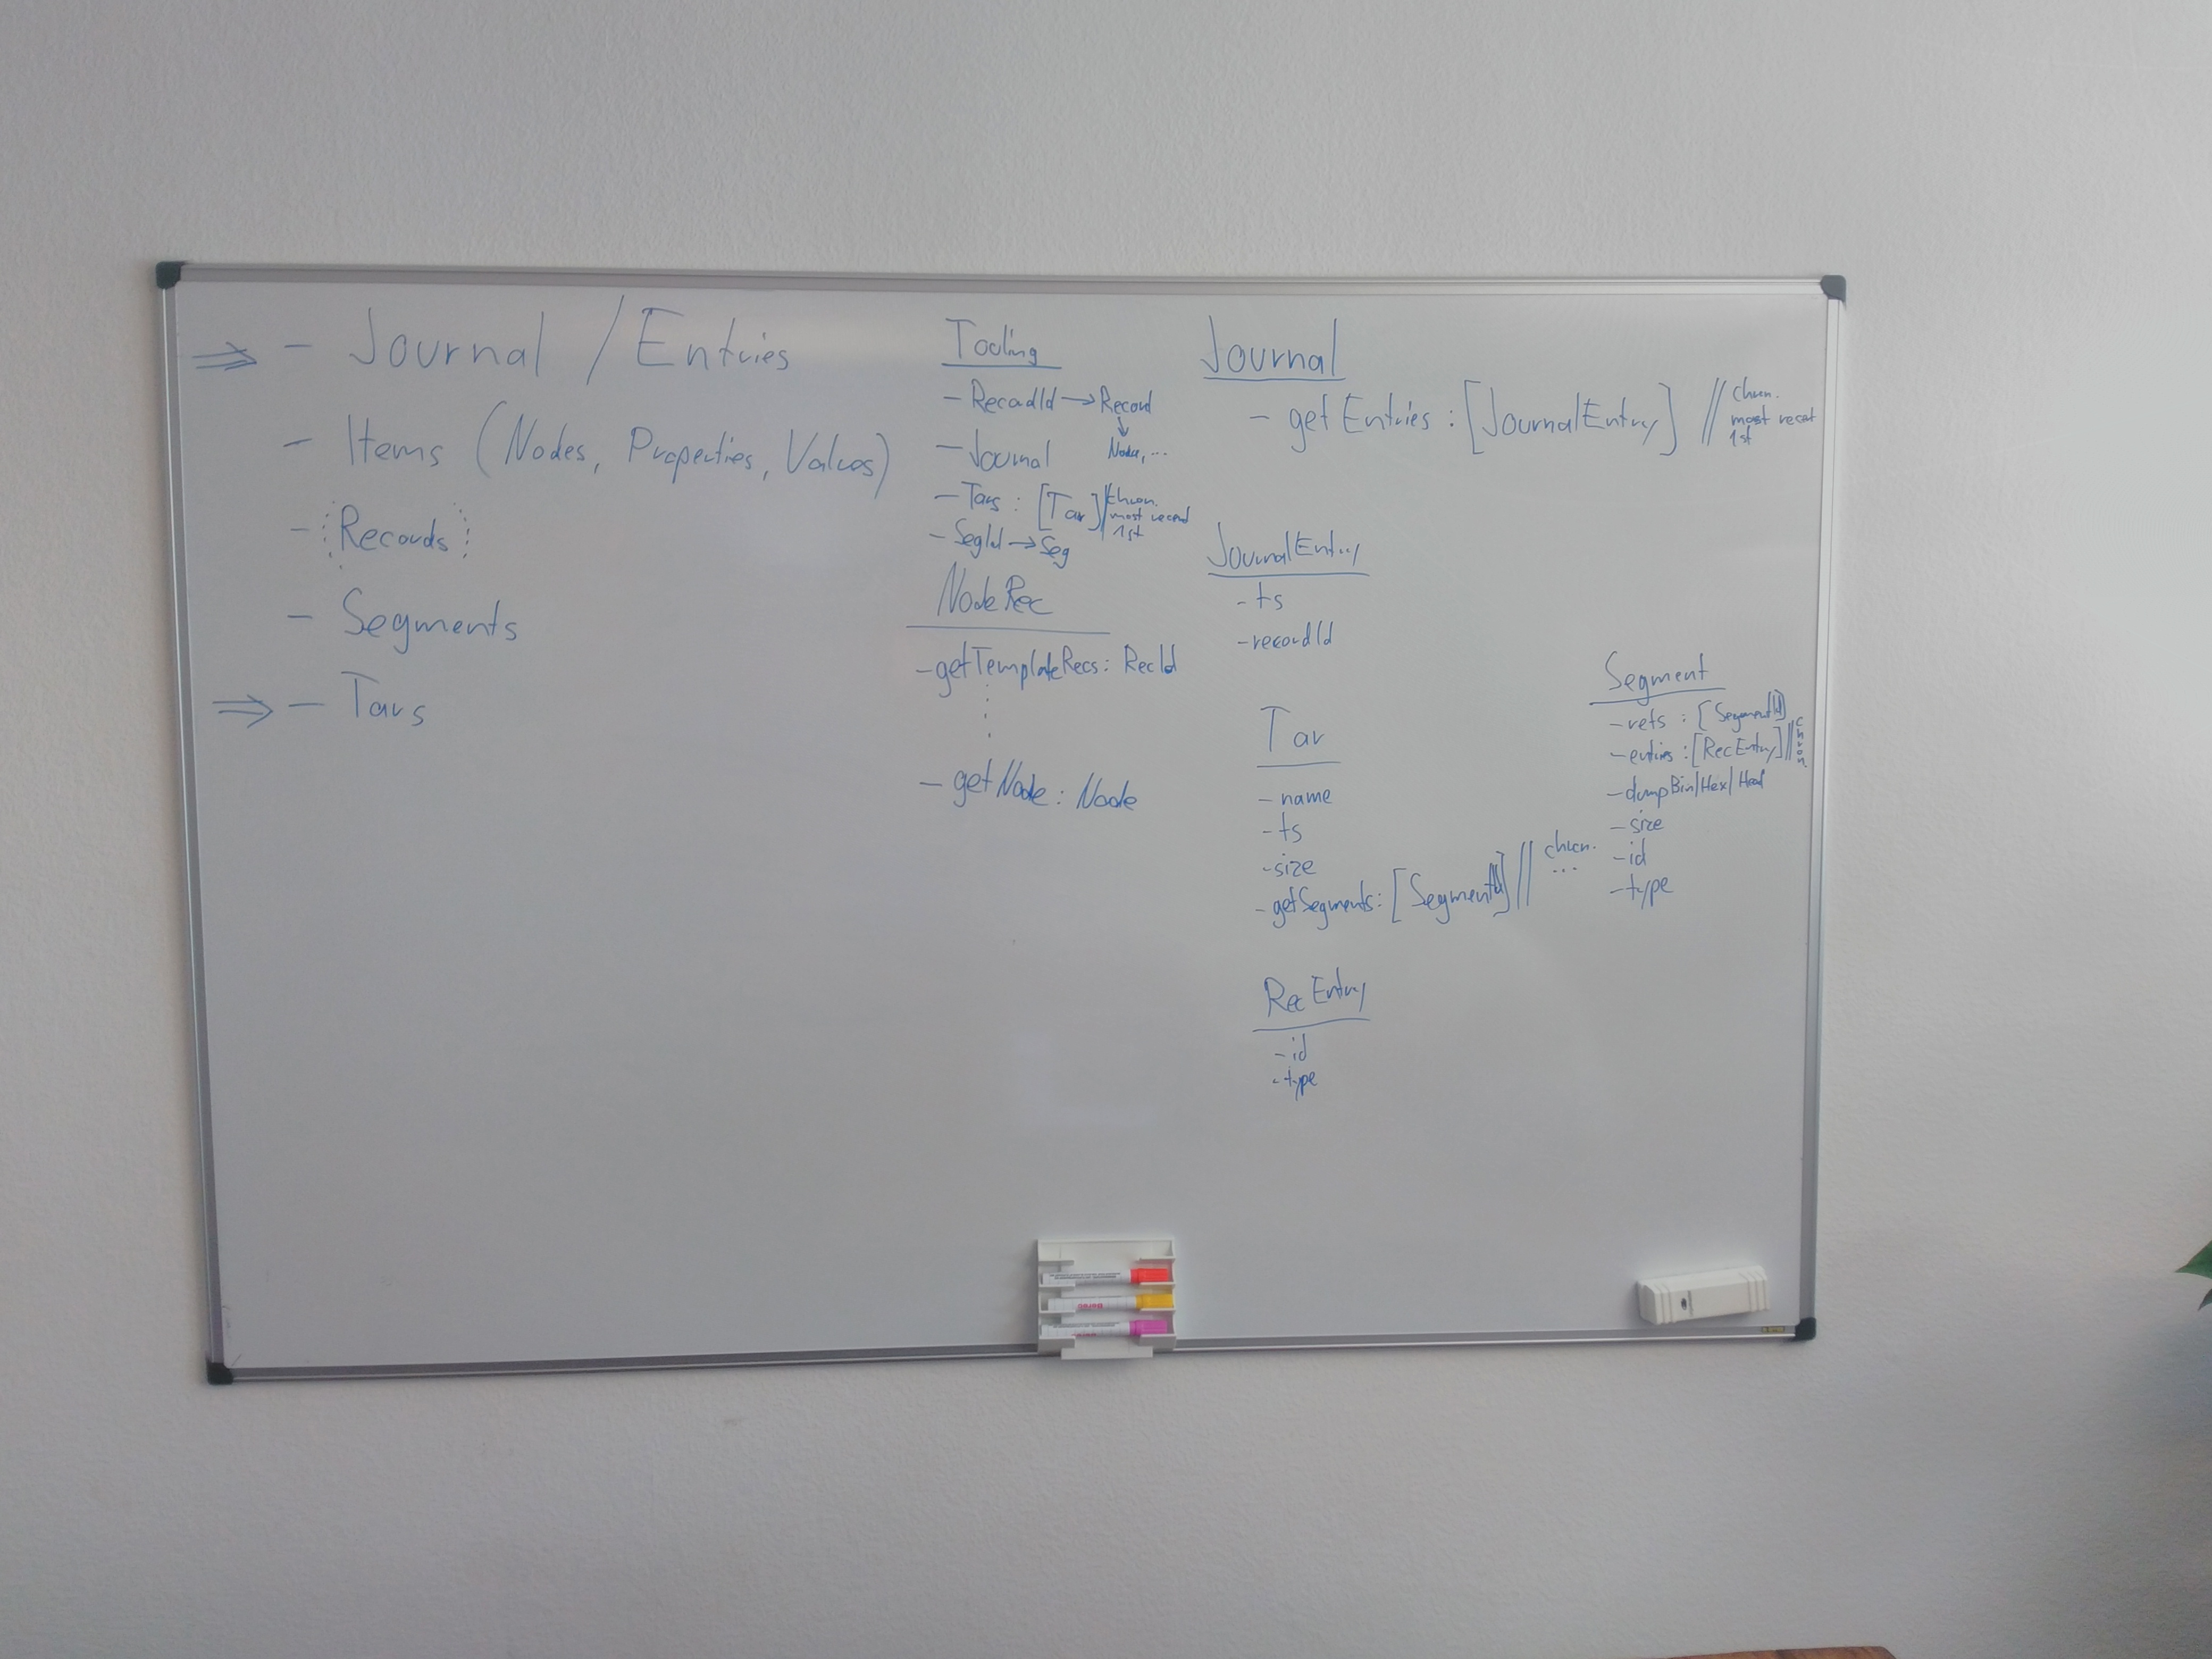 ⇒ - Journal / Entries
- Items (Nodes, Properties, Values)
- Records
- Segments
⇒ - Tars
Tooling
- RecordId → Record
↓
Node, ...
- Journal
- Tars : [Tar] // chron.
most recent
1st
- SegId → Seg
NodeRec
- getTemplateRecs: RecId
- getNode: Node
Journal
- getEntries : [JournalEntry] // chron.
most recent
1st
JournalEntry
- ts
- recordId
Tar
- name
- ts
- size
- getSegments: [SegmentId] // chron.
...
RecEntry
- id
- type
Segment
- refs : [SegmentId]
- entries : [RecEntry] // chron.
- dumpBin/Hex/
- size
- id
- type